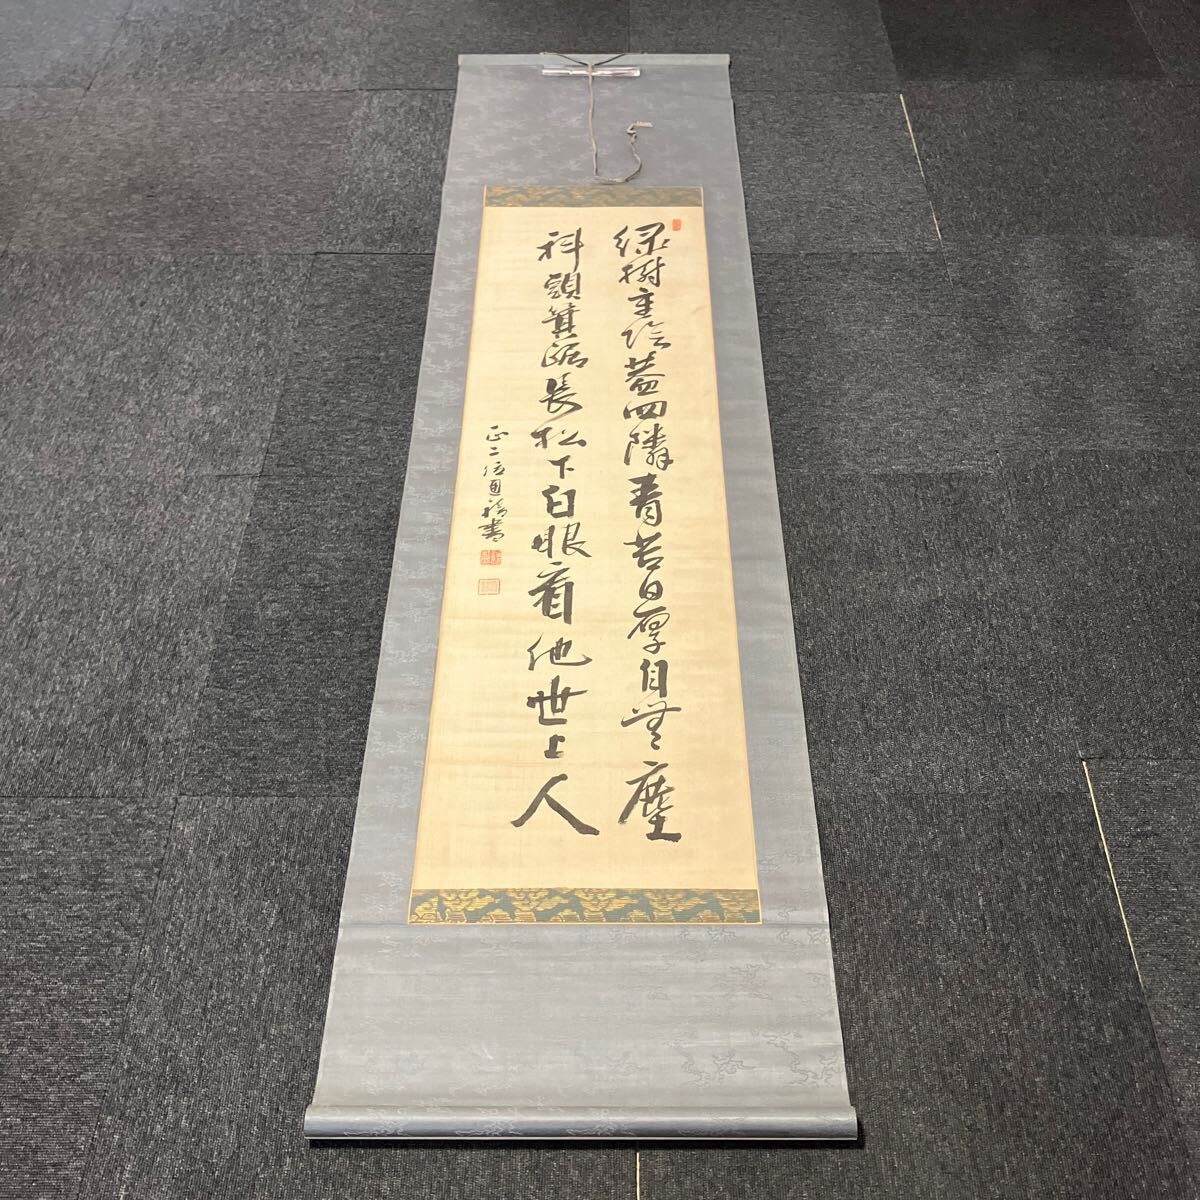 緑樹重陰蓋四隣青苔日厚自無塵
科頭箕踞長松下白眼看他世上人
正二位通禧書